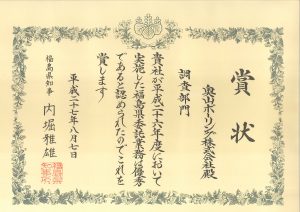 賞状
奥山ボーリング株式会社殿
調査部門
貴社が平成二十六年度において
実施した福島県委託業務は優秀
であると認められたのでこれを
賞します
平成二十七年八月七日
福島県知事 内堀雅雄